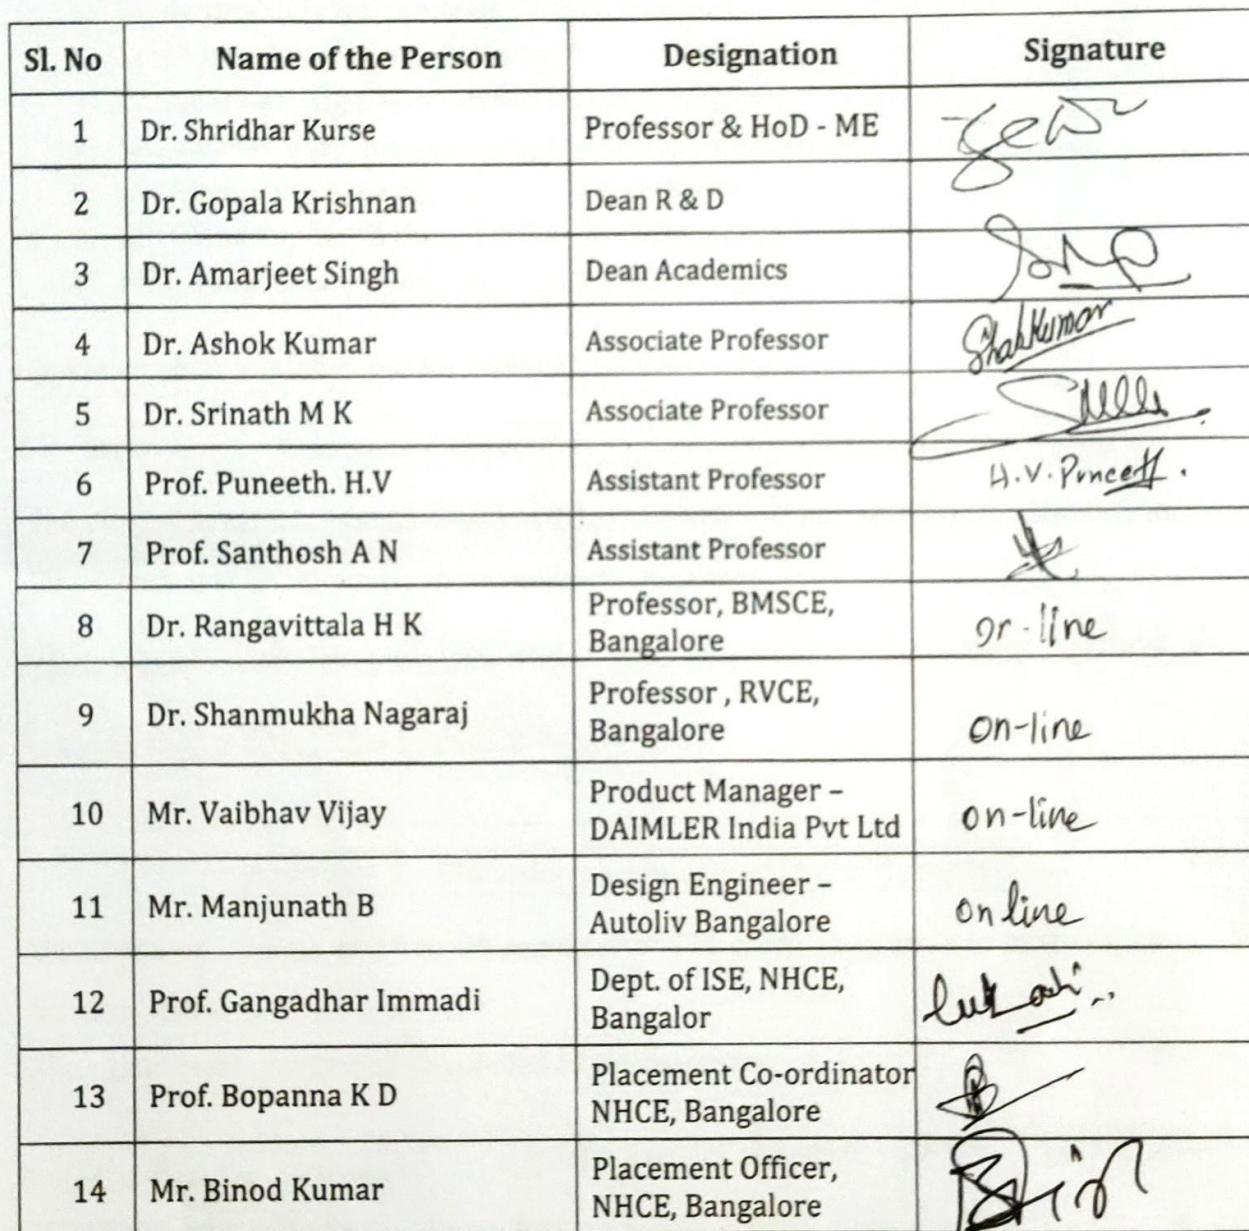 Sl. No Name of the Person Designation Signature
1 Dr. Shridhar Kurse Professor & HoD - ME
2 Dr. Gopala Krishnan Dean R & D
3 Dr. Amarjeet Singh Dean Academics
4 Dr. Ashok Kumar Associate Professor
5 Dr. Srinath M K Associate Professor
6 Prof. Puneeth. H.V Assistant Professor H.V.
7 Prof. Santhosh A N Assistant Professor
8 Dr. Rangavittala H K Professor, BMSCE,
Bangalore
9 Dr. Shanmukha Nagaraj Professor , RVCE,
Bangalore on-line
10 Mr. Vaibhav Vijay Product Manager –
DAIMLER India Pvt Ltd on-line
11 Mr. Manjunath B Design Engineer –
Autoliv Bangalore online
12 Prof. Gangadhar Immadi Dept. of ISE, NHCE,
Bangalor
13 Prof. Bopanna K D Placement Co-ordinator
NHCE, Bangalore
14 Mr. Binod Kumar Placement Officer,
NHCE, Bangalore